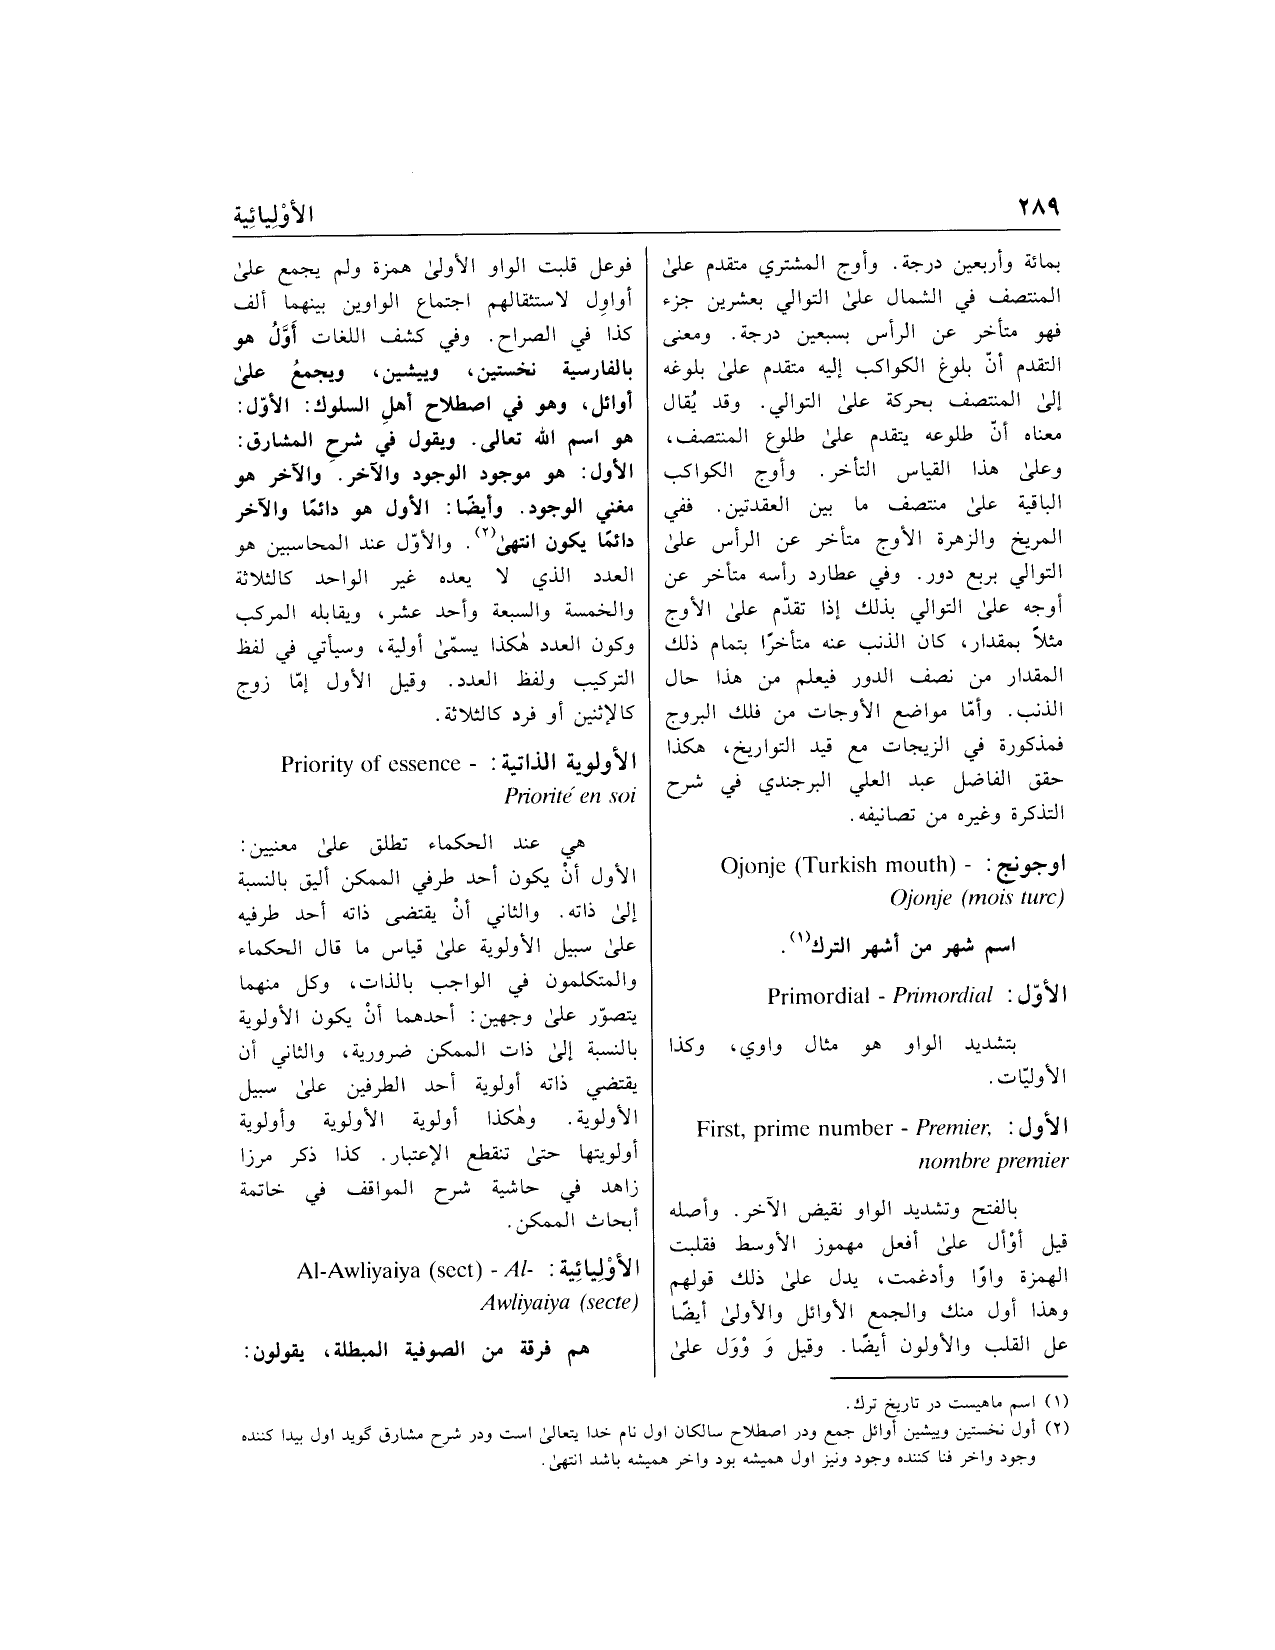 ٢٨٩
الأوْلِيائِية
بمائة وأربعين درجة. وأوج المشتري متقدم علىٰ
المنتصف في الشمال علىٰ التوالي بعشرين جزء
فهو متأخر عن الرأس بسبعين درجة. ومعنى
التقدم أنّ بلوغ الكواكب إليه متقدم علىٰ بلوغه
إلىٰ المنتصف بحركة علىٰ التوالي. وقد يُقال
معناه أنّ طلوعه يتقدم علىٰ طلوع المنتصف،
وعلىٰ هذا القياس التأخر. وأوج الكواكب
الباقية علىٰ منتصف ما بين العقدتين. ففي
المريخ والزهرة الأوج متأخر عن الرأس علىٰ
التوالي بربع دور. وفي عطارد رأسه متأخر عن
أوجه علىٰ التوالي بذلك إذا تقدّم علىٰ الأوج
مثلاً بمقدار، كان الذنب عنه متأخرًا بتمام ذلك
المقدار من نصف الدور فيعلم من هذا حال
الذنب. وأمّا مواضع الأوجات من فلك البروج
فمذكورة في الزيجات مع قيد التواريخ، هكذا
حقق الفاضل عبد العلي البرجندي في شرح
التذكرة وغيره من تصانيفه.
اوجونج: Ojonje (Turkish mouth) -
Ojonje (mois turc)
اسم شهر من أشهر الترك(١).
الأوّل: Primordial - Primordial
بتشديد الواو هو مثال واوي، وكذا
الأوليّات.
الأول: First, prime number - Premier,
nombre premier
بالفتح وتشديد الواو نقيض الآخر. وأصله
قيل أوْأل علىٰ أفعل مهموز الأوسط فقلبت
الهمزة واوًا وأدغمت، يدل علىٰ ذلك قولهم
وهذا أول منك والجمع الأوائل والأولىٰ أيضًا
عل القلب والأولون أيضًا. وقيل وَ وْوَل علىٰ
فوعل قلبت الواو الأولىٰ همزة ولم يجمع علىٰ
أواوِل لاستثقالهم اجتماع الواوين بينهما ألف
كذا في الصراح. وفي كشف اللغات أَوَّلُ هو
بالفارسية نخستين، وپيشين، ويجمعُ علىٰ
أوائل، وهو في اصطلاح أهلِ السلوك: الأوّل:
هو اسم الله تعالى. ويقول في شرحِ المشارق:
الأول: هو موجود الوجود والآخر. والآخر هو
مغني الوجود. وأيضًا: الأول هو دائمًا والآخر
دائمًا يكون انتهىٰ(٢). والأوّل عند المحاسبين هو
العدد الذي لا يعده غير الواحد كالثلاثة
والخمسة والسبعة وأحد عشر، ويقابله المركب
وكون العدد هٰكذا يسمّىٰ أولية، وسيأتي في لفظ
التركيب ولفظ العدد. وقيل الأول إمّا زوج
كالإثنين أو فرد كالثلاثة.
الأولوية الذاتية: Priority of essence -
Priorité en soi
هي عند الحكماء تطلق علىٰ معنيين:
الأول أنْ يكون أحد طرفي الممكن أليق بالنسبة
إلىٰ ذاته. والثاني أنْ يقتضى ذاته أحد طرفيه
علىٰ سبيل الأولوية علىٰ قياس ما قال الحكماء
والمتكلمون في الواجب بالذات، وكل منهما
يتصوّر علىٰ وجهين: أحدهما أنْ يكون الأولوية
بالنسبة إلىٰ ذات الممكن ضرورية، والثاني أن
يقتضي ذاته أولوية أحد الطرفين علىٰ سبيل
الأولوية. وهٰكذا أولوية الأولوية وأولوية
أولويتها حتىٰ تنقطع الإعتبار. كذا ذكر مرزا
زاهد في حاشية شرح المواقف في خاتمة
أبحاث الممكن.
الأوْلِيائِية: Al-Awliyaiya (sect) - Al-
Awliyaiya (secte)
هم فرقة من الصوفية المبطلة، يقولون:
(١) اسم ماهيست در تاريخ ترك.
(٢) أول نخستين وپيشين أوائل جمع ودر اصطلاح سالكان اول نام خدا يتعالىٰ است ودر شرح مشارق گويد اول پيدا كننده
وجود واخر فنا كننده وجود ونيز اول هميشه بود واخر هميشه باشد انتهىٰ.